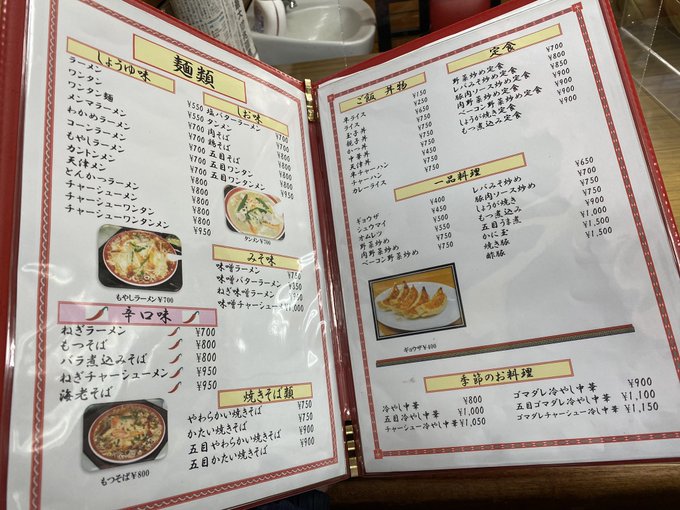 麺類
しょうゆ味
ラーメン ¥550
ワンタン ¥550
ワンタン麺 ¥700
メンマラーメン ¥700
わかめラーメン ¥700
コーンラーメン ¥700
もやしラーメン ¥700
カントンメン ¥800
天津メン ¥800
とんかつラーメン ¥800
チャーシューメン ¥800
チャーシューワンタン ¥800
チャーシューワンタンメン ¥950
もやしラーメン¥700
辛口味
ねぎラーメン ¥700
もつそば ¥800
バラ煮込みそば ¥800
ねぎチャーシューメン ¥950
海老そば ¥950
もつそば ¥800
しお味
塩バターラーメン ¥700
タンメン ¥700
肉そば
鶏そば
五目そば
五目ワンタン
五目ワンタンメン
タンメン ¥700
みそ味
味噌ラーメン ¥750
味噌バターラーメン
ねぎ味噌ラーメン
味噌チャーシューメン
焼きそば類
やわらかい焼きそば ¥750
かたい焼きそば ¥750
五目やわらかい焼きそば ¥900
五目かたい焼きそば ¥900
ご飯 丼物
半ライス ¥150
ライス ¥250
玉子丼 ¥650
親子丼 ¥750
かつ丼 ¥750
中華丼 ¥750
天津丼 ¥750
半チャーハン ¥450
チャーハン ¥750
カレーライス ¥750
定食
野菜炒め定食 ¥700
レバみそ炒め定食 ¥800
豚肉ソース炒め定食
肉野菜炒め定食
ベーコン野菜炒め定食 ¥900
しょうが焼き定食 ¥900
もつ煮込み定食 ¥900
一品料理
ギョウザ ¥400
シュウマイ ¥450
オムレツ ¥550
野菜炒め
肉野菜炒め
ベーコン野菜炒め ¥750
レバみそ炒め ¥650
豚肉ソース炒め ¥700
しょうが焼き
もつ煮込み
五目うま煮
かに玉
焼き豚
酢豚 ¥1,500
ギョウザ¥400
季節のお料理
冷やし中華 ¥800
五目冷やし中華 ¥1,000
チャーシュー冷やし中華 ¥1,050
ゴマダレ冷やし中華 ¥900
五目ゴマダレ冷やし中華 ¥1,100
ゴマダレチャーシュー冷やし中華 ¥1,150